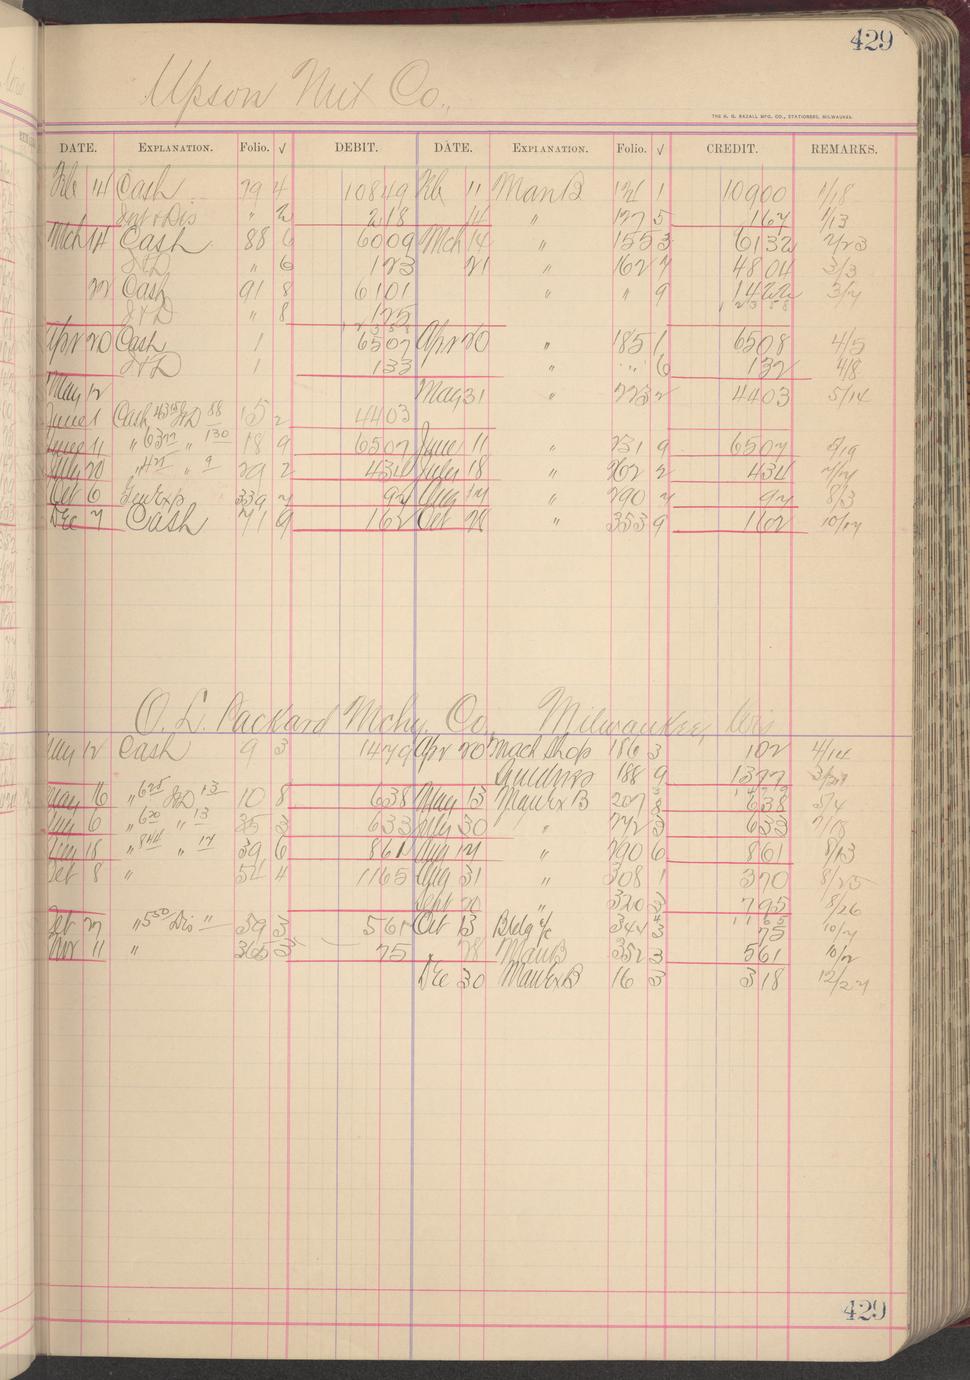 429
Upson Nut Co.,
THE H. G. RAZALL MFG. CO., STATIONERS, MILWAUKEE.
DATE. EXPLANATION. Folio. √ DEBIT. DATE. EXPLANATION. Folio. √ CREDIT. REMARKS.
Feb 14 Cash 79 4 10849 Feb 11 Man B 1 10900 1/18
Int & Dis " 2 218 14 " 177 5 167 1/13
Mch 14 Cash 88 6 6009 Mch 14 " 155 3 6132 2/23
I&D " 6 123 21 " 162 7 4804 3/3
22 Cash 91 8 6101 " " 9 1422 3/7
I&D " 8 125 12358
Apr 20 Cash 1 6507 Apr 20 " 185 1 6508 4/5
I&D 1 133 " " 6 132 4/8
May 12 May 31 " 223 2 4403 5/14
June 1 Cash 4315 I&D 88 15 2 4403
June 11 " 6377 " 130 18 9 6507 June 11 " 231 9 6507 5/19
July 20 " 425 " 9 29 2 434 July 18 " 262 2 434 7/7
Oct 6 Gen Exp 339 7 97 Aug 17 " 290 7 97 8/3
Dec 7 Cash 71 9 162 Oct 28 " 353 9 162 10/17
O. L. Packard Mchy. Co. Milwaukee, Wis
May 12 Cash 9 3 1479 Apr 20 Mach Shop 186 3 102 4/14
188 9 1377 3/29
May 16 " 625 I&D 13 10 8 638 May 13 Man Ex B 207 8 638 5/4
" 620 " 13 25 3 633 30 " 272 3 633 7/18
18 " 844 " 17 39 6 861 Aug 17 " 290 6 861 8/13
Oct 8 " 54 4 1165 Aug 31 " 308 1 370 8/25
Sept 20 " 320 3 795 8/26
Oct 27 " 550 Dis " 59 3 561 Oct 13 Bldg a/c 344 3 75 10/7
Nov 11 " 365 3 75 28 Man B 352 3 561 10/2
Dec 30 Man Ex B 16 3 318 12/27
429